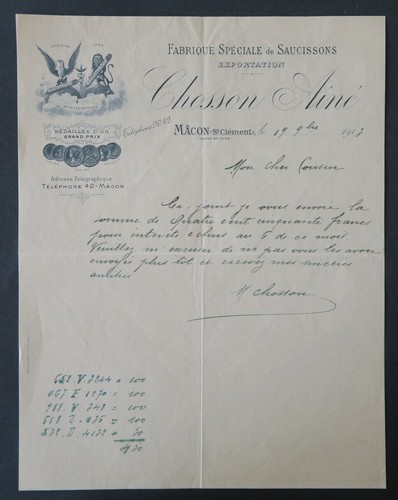 FABRIQUE SPÉCIALE de SAUCISSONS
EXPORTATION
Chosson Aîné
MÉDAILLES D'OR
GRAND PRIX
Téléphone 0.42
MÂCON-St Clément, le 19 9bre 1917
Adresse Télégraphique
TÉLÉPHONE 42-MÂCON
Mon cher Cousin
Ci-joint je vous envoie la
somme de Quatre cent cinquante francs
pour intérêts échus au 6 de ce mois
Veuillez m'excuser de ne pas vous les avoir
envoyés plus tôt et recevez mes sincères
amitiés
M Chosson
V. 7244 = 100
1270 = 100
V. 748 = 100
= 100
4172 = 50
450